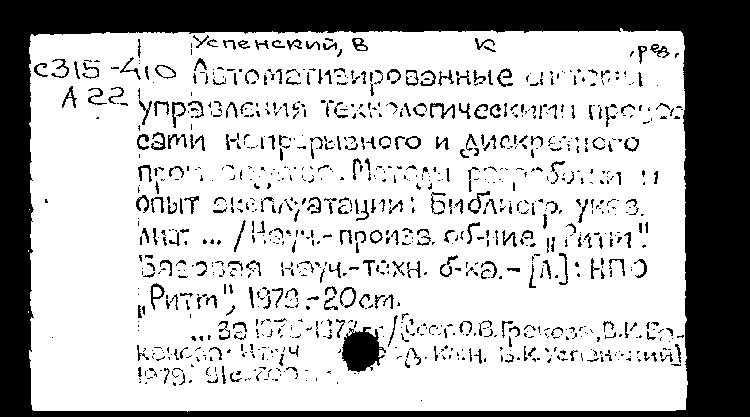 Успенский, В К , ред.
С315-410 Автоматизированные системы
А 22 управления технологическими процес
сами непрерывного и дискретного
производства. Методы разработки и
опыт эксплуатации: Библиогр. указ.
лит. ... / Науч.-произв. об-ние „Ритм".
Базовая науч.-техн. б-ка. - [Л.]: НПО
„Ритм", 1979.-20см.
... За 1976-1978 гг / [Сост. О.В. , В.К.
Науч К.н. В.К. Успенский]
1979. 91с.